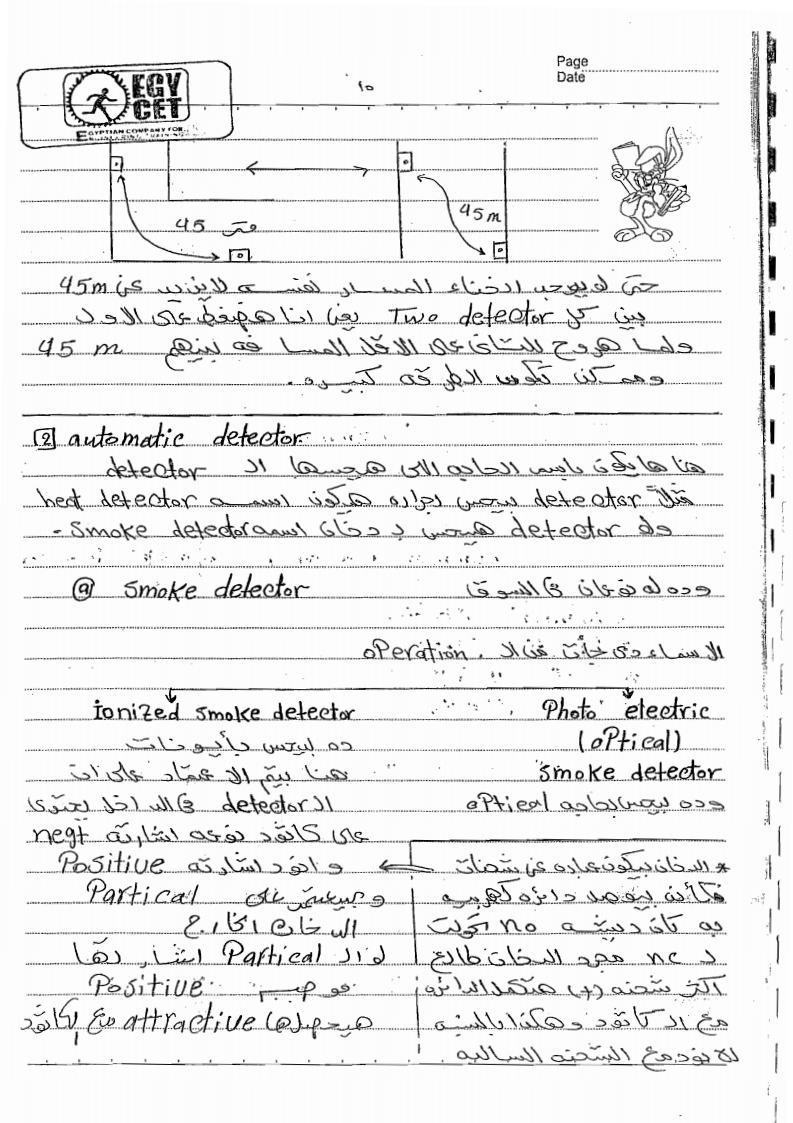 Page
Date
١٥
EGY
CET
EGYPTIAN COMPANY FOR
45 متر
45 m
حتى لو يوجد انحناء المسار نفسه لا يزيد عن 45m
بين كل Two detector يعنى انا هضغط على الاول
ولما هروح للتانى على الاقل المسافه بينهم 45 m
وممكن تكون الطرقه كبيره.
2 automatic detector
هنا هايكون باسم الحاجه الاى هحسها ال detector
مثلاً detector بيحس بحراره هيكون اسمه heat detector
ولو detector هيحس بدخان اسمه Smoke detector -
a Smoke detector وده له نوعان فى السوق
الاسماء دى جأت من ال operation.
ionized smoke detector
ده بيحس بأيونات
هنا بيتم الاعتماد على ان
ال detector فى الداخل يحتوى
على كاثود نوعه اشارته negt
و انود اشارته Positive
وبيعتمد على Partical
الدخان الخارج
لو ال Partical اشارتها
Positive
هيحصلها attractive مع الكاثود
Photo electric
(optical)
smoke detector
وده بيحس بحاجه optical
* الدخان بيكون عباره عن شحنات
فكأنه بيقصد دائره كهربيه
no اتحولت
ل nc مجرد الدخان طالع
اكتر شحنه (+) هتكمل الدائره
مع ال كاثود وهكذا بالنسبه
للانود مع الشحنه السالبه